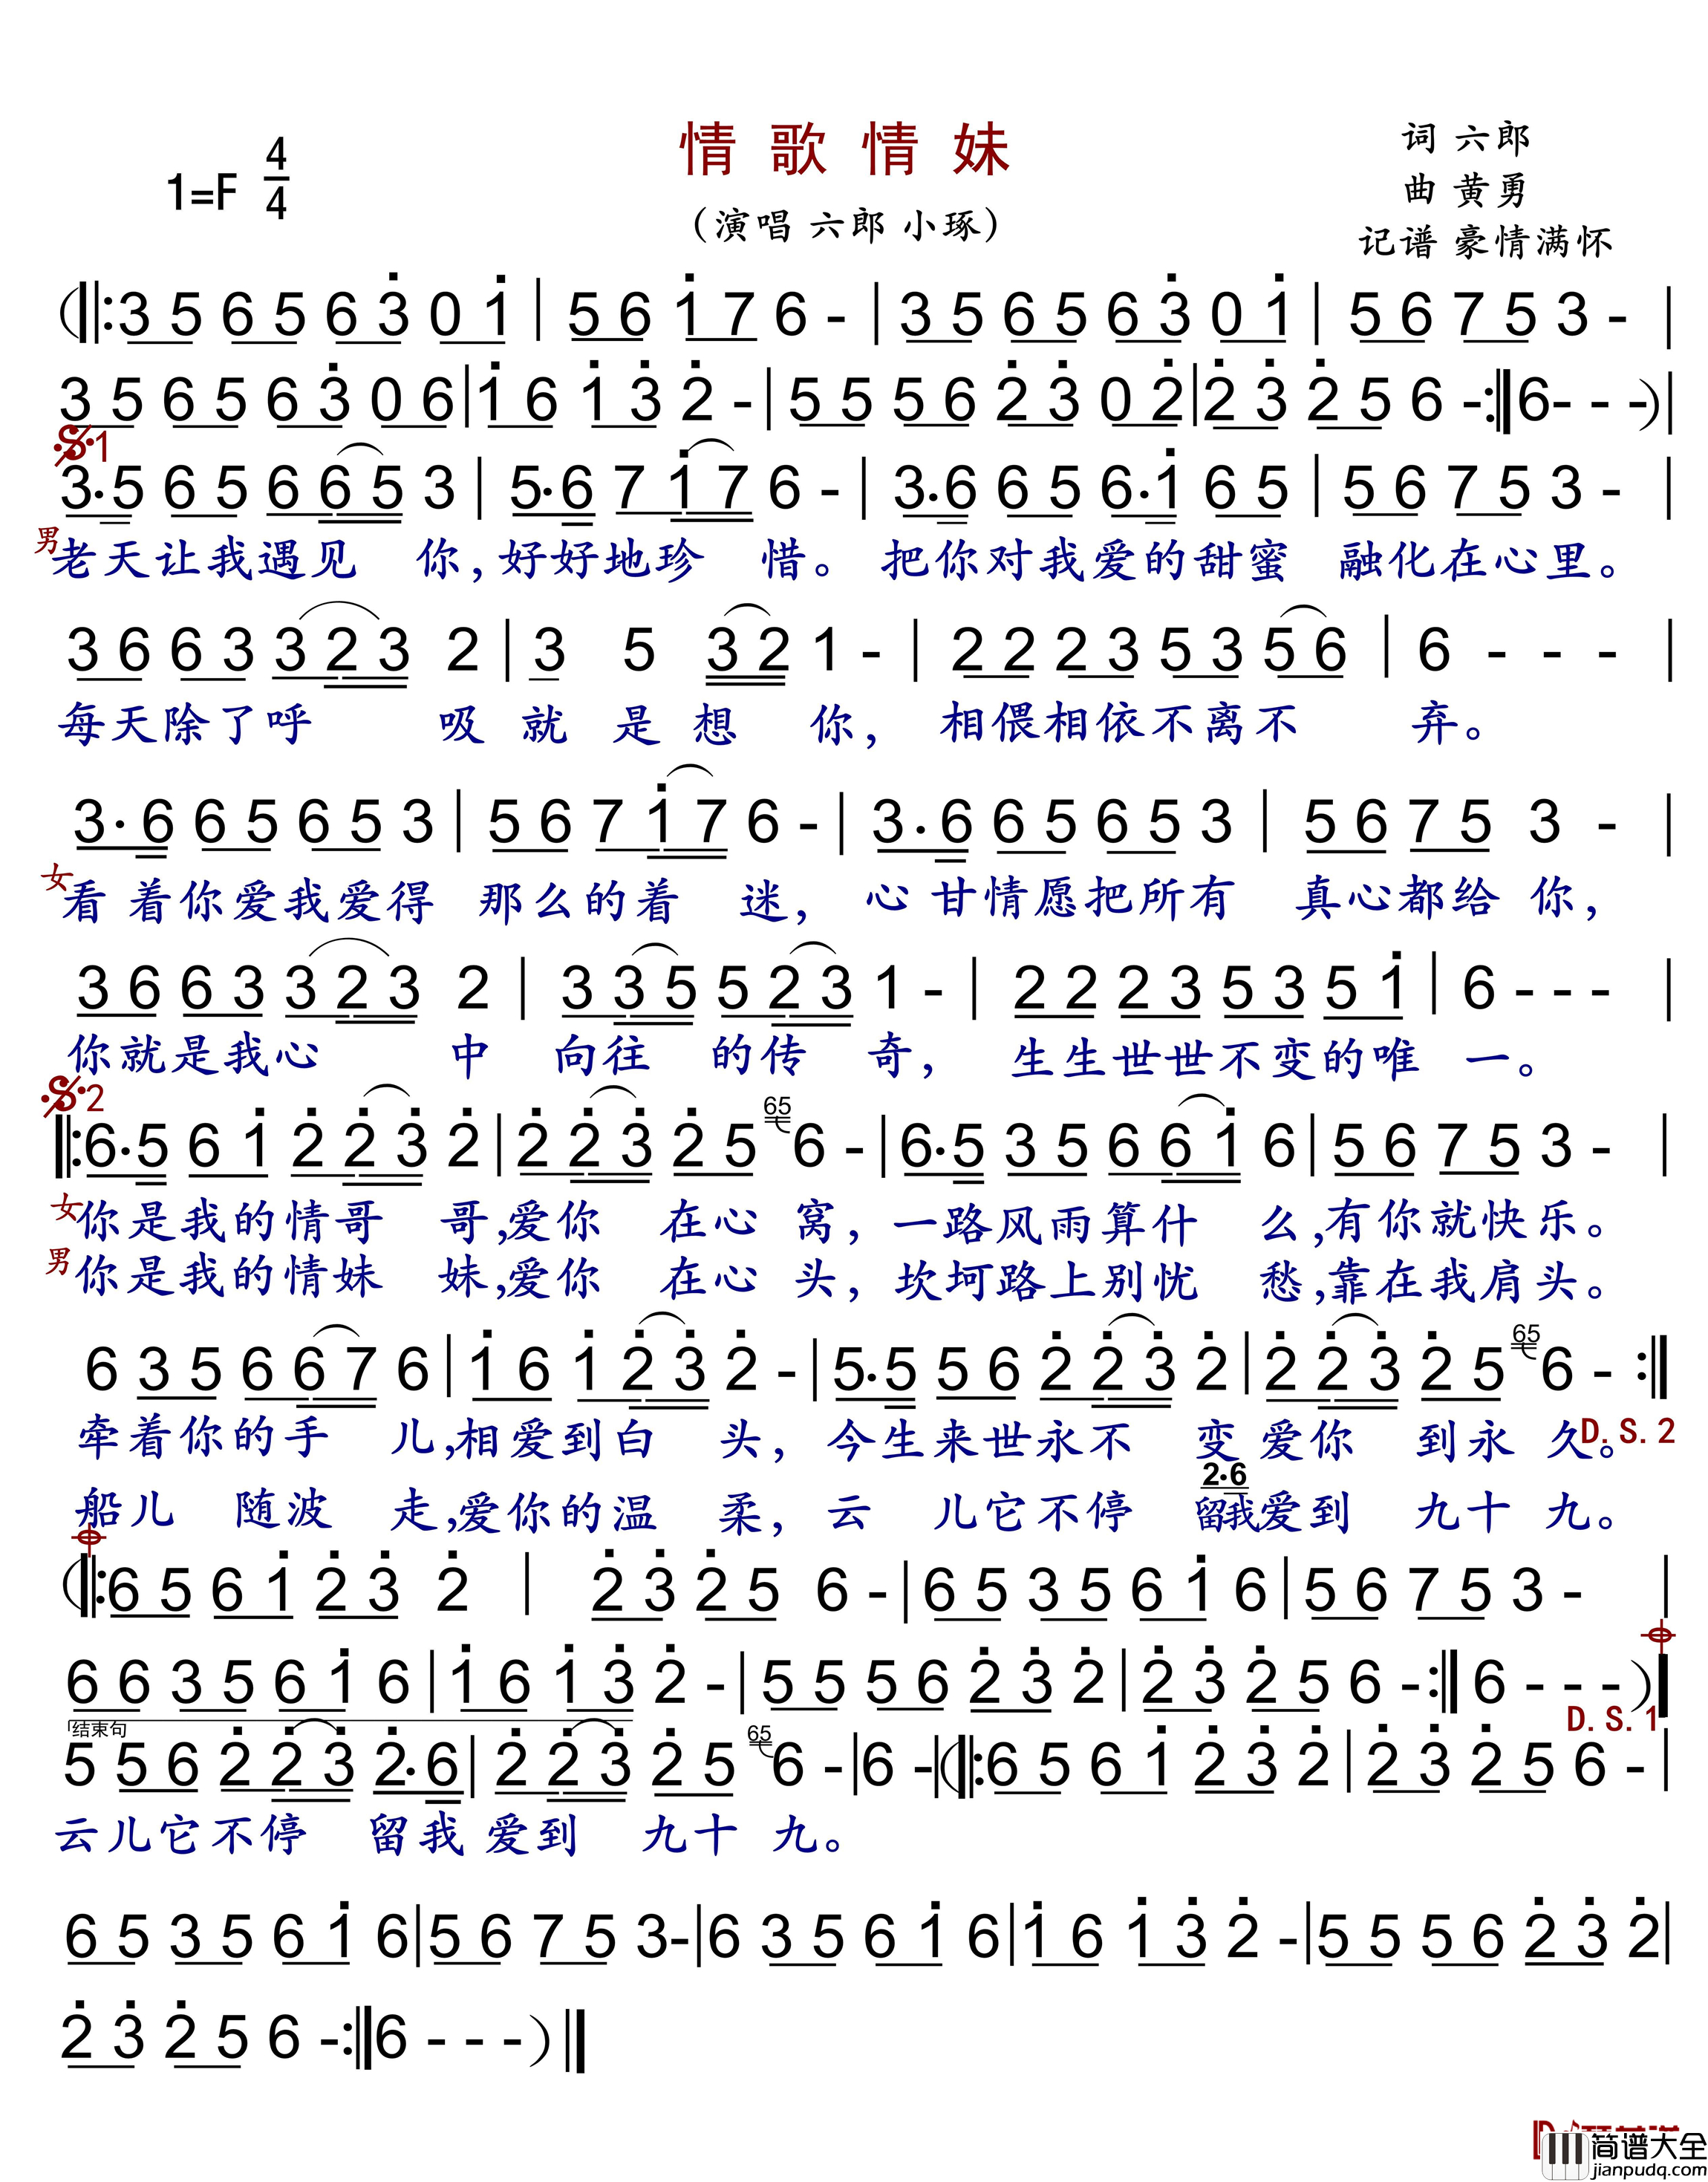 情歌情妹
1=F 4/4
(演唱 六郎 小琢)
词 六郎
曲 黄勇
记谱 豪情满怀
(‖:3 5 6 5 6 3̇ 0 1̇ | 5 6 1̇ 7 6 - | 3 5 6 5 6 3̇ 0 1̇ | 5 6 7 5 3 - |
3 5 6 5 6 3̇ 0 6 | 1̇ 6 1̇ 3̇ 2̇ - | 5 5 5 6 2̇ 3̇ 0 2̇ | 2̇ 3̇ 2̇ 5 6 - :‖ 6 - - -) |
𝄋1
3·5 6 5 6 6 5 3 | 5·6 7 1̇ 7 6 - | 3·6 6 5 6·1̇ 6 5 | 5 6 7 5 3 - |
男 老天让我遇见 你,好好地珍 惜。 把你对我爱的甜蜜 融化在心里。
3 6 6 3 3 2 3 2 | 3 5 3 2 1 - | 2 2 2 3 5 3 5 6 | 6 - - - |
每天除了呼 吸 就 是 想 你, 相偎相依不离不 弃。
3·6 6 5 6 5 3 | 5 6 7 1̇ 7 6 - | 3·6 6 5 6 5 3 | 5 6 7 5 3 - |
女 看 着你爱我爱得 那么的着 迷, 心 甘情愿把所有 真心都给 你,
3 6 6 3 3 2 3 2 | 3 3 5 5 2 3 1 - | 2 2 2 3 5 3 5 1̇ | 6 - - - |
你就是我心 中 向往 的传 奇, 生生世世不变的唯 一。
𝄋2
‖:6·5 6 1̇ 2̇ 2̇ 3̇ 2̇ | 2̇ 2̇ 3̇ 2̇ 5 65 6 - | 6·5 3 5 6 6 1̇ 6 | 5 6 7 5 3 - |
女 你是我的情哥 哥,爱你 在心 窝, 一路风雨算什 么,有你就快乐。
男 你是我的情妹 妹,爱你 在心 头, 坎坷路上别忧 愁,靠在我肩头。
6 3 5 6 6 7 6 | 1̇ 6 1̇ 2̇ 3̇ 2̇ - | 5·5 5 6 2̇ 2̇ 3̇ 2̇ | 2̇ 2̇ 3̇ 2̇ 5 65 6 - :‖
牵着你的手 儿,相爱到白 头, 今生来世永不 变 爱你 到永 久。 D.S.2
2·6
船儿 随波 走,爱你的温 柔, 云 儿它不停 留我爱到 九十 九。
𝄌
(‖:6 5 6 1̇ 2̇ 3̇ 2̇ | 2̇ 3̇ 2̇ 5 6 - | 6 5 3 5 6 1̇ 6 | 5 6 7 5 3 - |
𝄌
6 6 3 5 6 1̇ 6 | 1̇ 6 1̇ 3̇ 2̇ - | 5 5 5 6 2̇ 3̇ 2̇ | 2̇ 3̇ 2̇ 5 6 - :‖ 6 - - -) |
D.S.1
结束句
5 5 6 2̇ 2̇ 3̇ 2̇·6 | 2̇ 2̇ 3̇ 2̇ 5 65 6 - | 6 - | (‖:6 5 6 1̇ 2̇ 3̇ 2̇ | 2̇ 3̇ 2̇ 5 6 - |
云儿它不停 留我 爱到 九十 九。
6 5 3 5 6 1̇ 6 | 5 6 7 5 3 - | 6 3 5 6 1̇ 6 | 1̇ 6 1̇ 3̇ 2̇ - | 5 5 5 6 2̇ 3̇ 2̇ |
2̇ 3̇ 2̇ 5 6 - :‖ 6 - - -) ‖
简谱大全
jianpudq.com